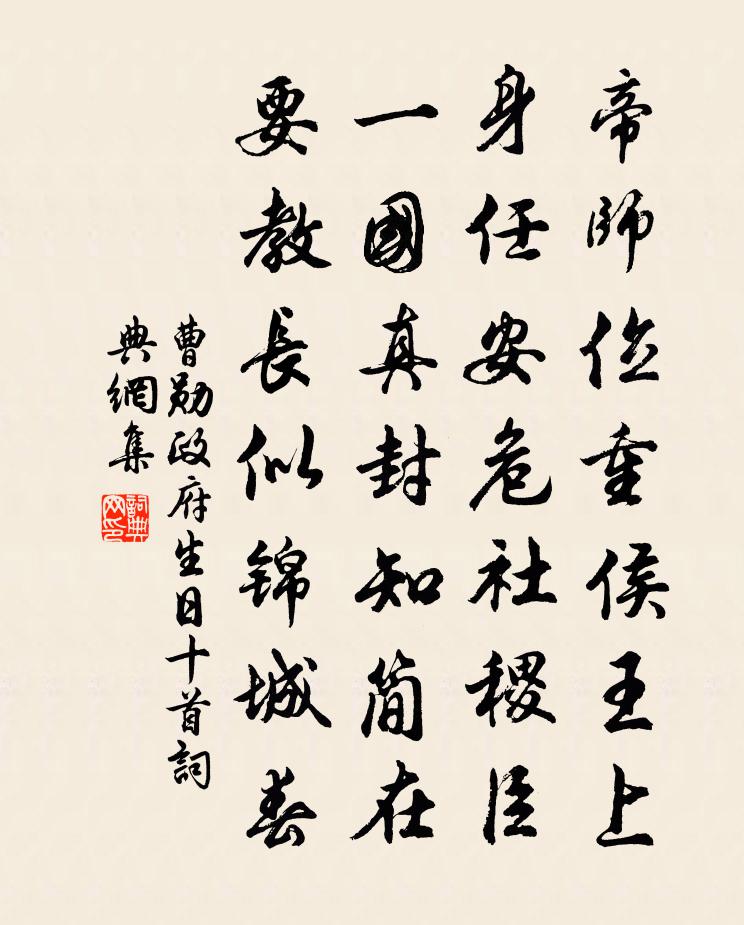 帝師位重侯王上
身任安危社稷臣
一國真封知簡在
要教長似錦城春
曹勛政府生日十首詞
典網集
詞典網印